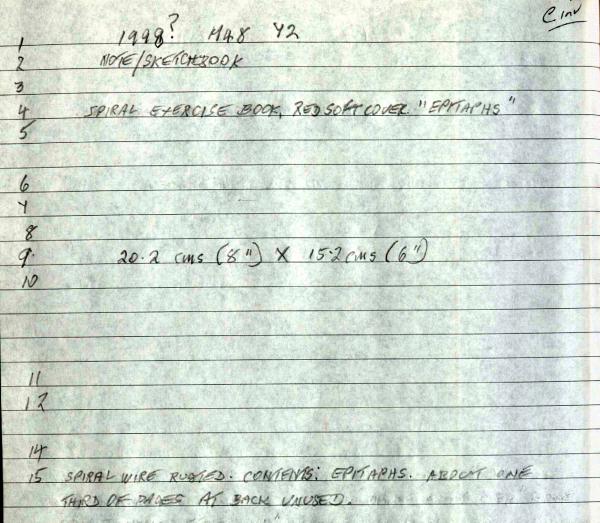 C inv
1 1998? M48 Y2
2 NOTE/SKETCHBOOK
3
4 SPIRAL EXERCISE BOOK, RED SOFT COVER "EPITAPHS"
5
6
7
8
9. 20.2 cms (8") X 15.2 cms (6")
10
11
12
14
15 SPIRAL WIRE RUSTED. CONTENTS: EPITAPHS. ABOUT ONE
THIRD OF PAGES AT BACK UNUSED.